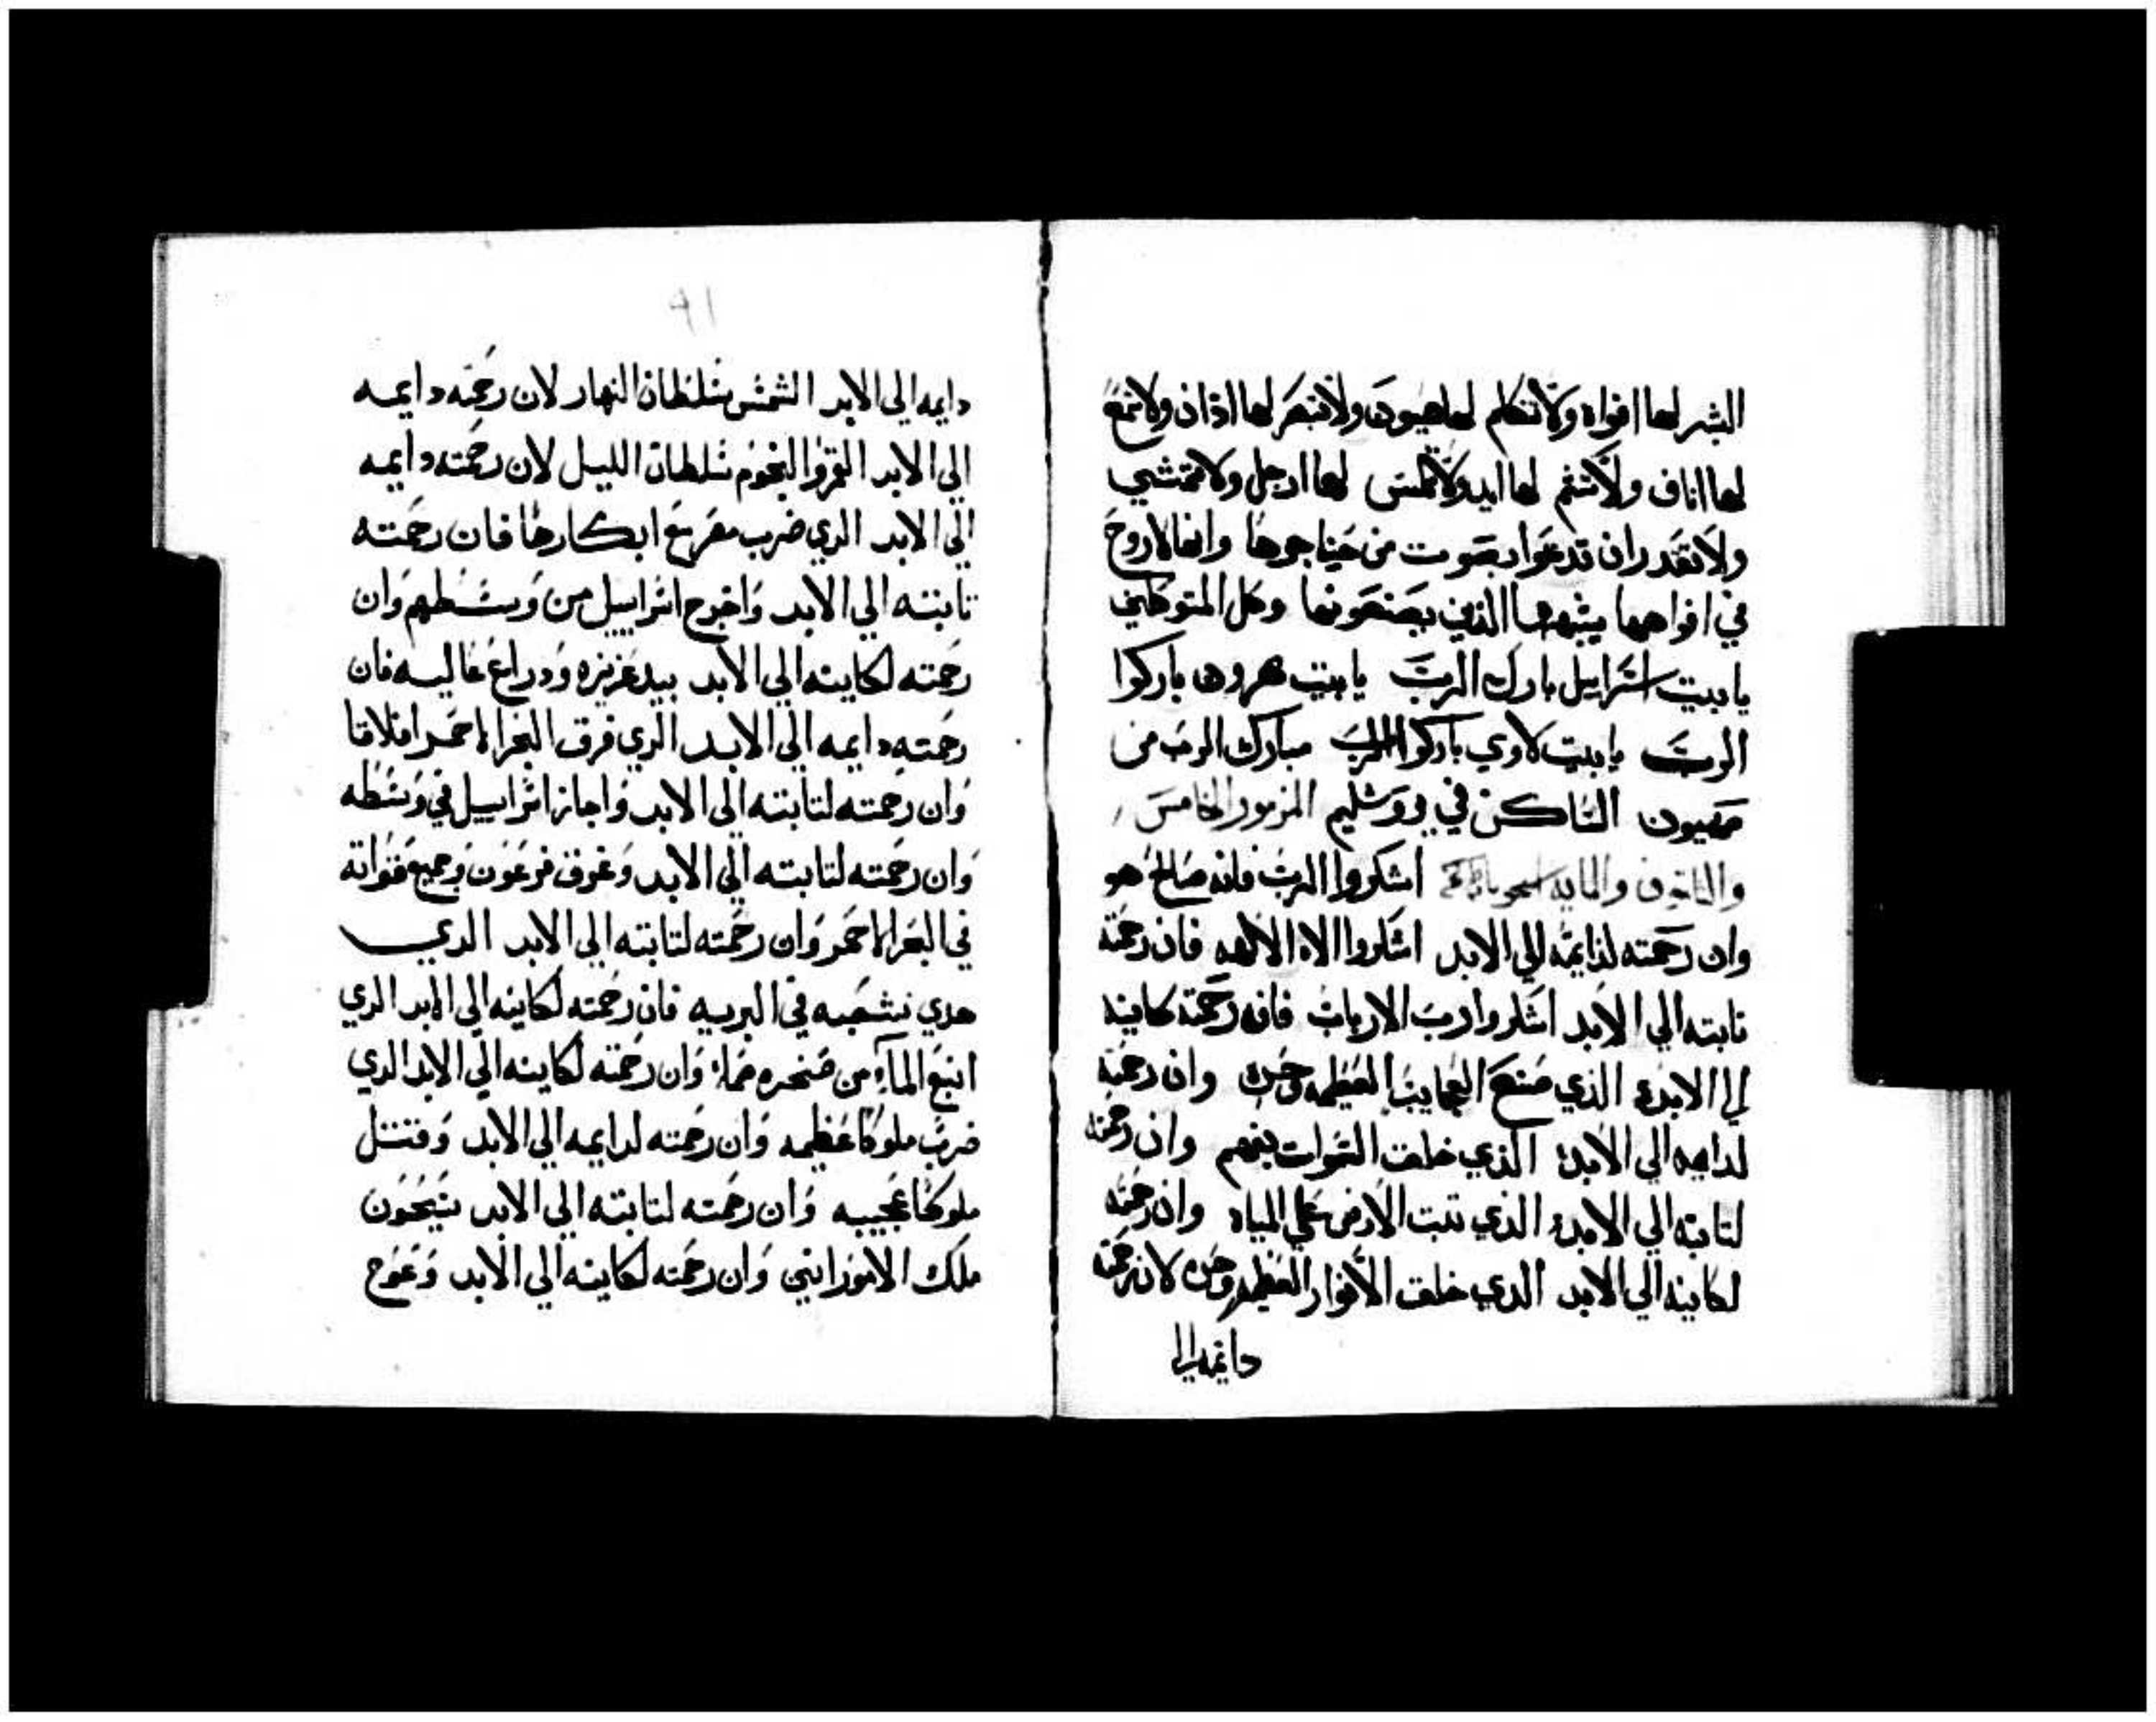 البشر لها افواه ولا تتكلم لها عيون ولا تبصر لها اذان ولا تسمع
لها اناف ولا تشتم لها ايد ولا تلمس لها ارجل ولا تمتشي
ولا تقدر ان تدعوا بصوت من حناجرها وانها لا روح
في افواهها يشبهها الذين يصنعونها وكل المتوكلين
يا بيت اسراييل بارك الرب يا بيت هرون باركوا
الرب يا بيت لاوي باركوا الرب مبارك الرب من
صهيون الساكن في يروشليم المزمور الخامس
والثلثون والمايه اشكروا الرب فانه صالح هو
وان رحمته لدايمه الي الابد اشكروا الاه الالهه فان رحمته
تابته الي الابد اشكروا رب الارباب فان رحمته كاينه
الي الابد الذي صنع العجايب العظيمه وحده وان رحمته
لدايمه الي الابد الذي خلق السموات بفهم وان رحمته
لتابته الي الابد الذي تبت الارض علي المياه وان رحمته
لكاينه الي الابد الدي خلق الانوار العظيمه وحده لان رحمته
دايمه الي
91
دايمه الي الابد الشمس سلطان النهار لان رحمته دايمه
الي الابد القمر والنجوم سلطان الليل لان رحمته دايمه
الي الابد الدي ضرب مصر مع ابكارها فان رحمته
تابته الي الابد واخرج اسراييل من وسطهم وان
رحمته لكاينه الي الابد بيد عزيزه ودراع عاليه فان
رحمته دايمه الي الابد الدي فرق البحر الاحمر افلاقا
وان رحمته لتابته الي الابد واجاز اسراييل في وسطه
وان رحمته لتابته الي الابد وغرق فرعون وجميع قواته
في البحر الاحمر وان رحمته لتابته الي الابد الدي
هدي شعبه في البريه فان رحمته لكاينه الي الابد الدي
انبع الماء من صخره صماء وان رحمته لكاينه الي الابد الدي
ضرب ملوكا عظيمه وان رحمته لدايمه الي الابد وقتل
ملوكا عجيبه وان رحمته لتابته الي الابد سيحون
ملك الامورانيي وان رحمته لكاينه الي الابد وعوج